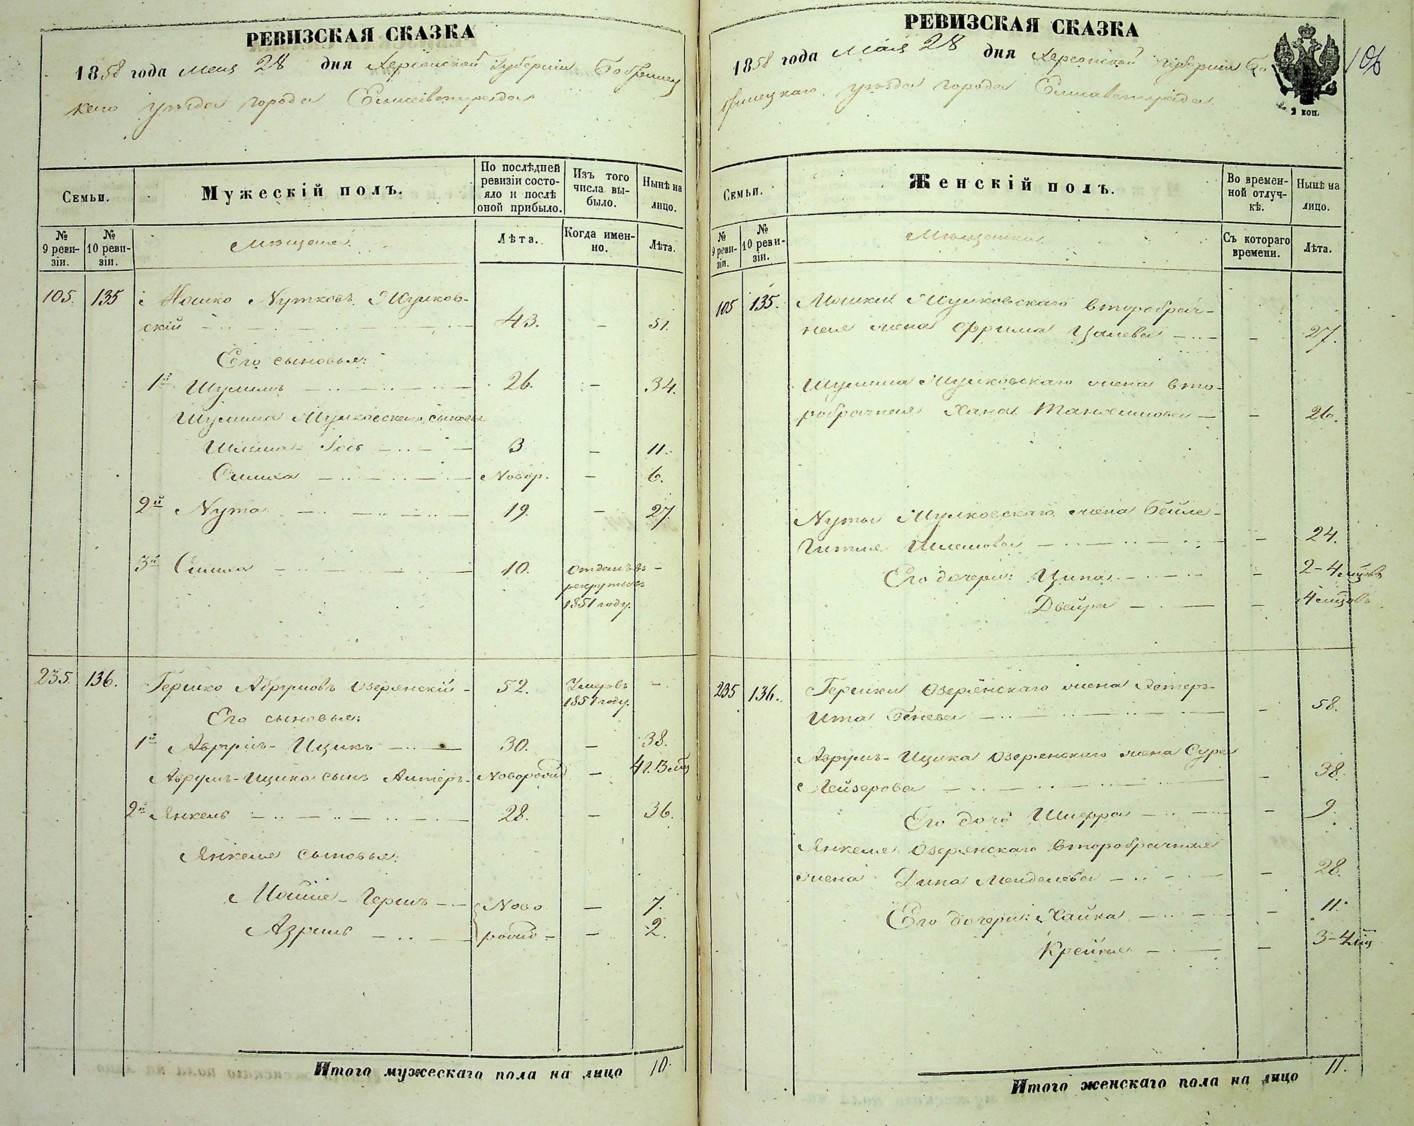 РЕВИЗСКАЯ СКАЗКА
1858 года Мая 28 дня Херсонской Губернiи Бобринец
каго уѣзда города Елисаветграда
Семьи.
Мужескiй полъ.
По послѣдней
ревизiи состо-
яло и послѣ
оной прибыло.
Изъ того
числа вы-
было.
Нынѣ на
лицо.
№
9 реви-
зiи.
№
10 реви-
зiи.
Мѣщане.
Лѣта.
Когда имен-
но.
Лѣта.
105. 135 Мошко Нутковъ
скiй 43. — 51.
Его сыновья:
1й Шулимъ 26. — 34.
Шулима сыновья
3 — 11.
Симха Новор. — 6.
2й Нута 19. — 27.
3й Симха 10. Отданъ въ —
рекруты въ
1851 году.
235. 136. Гершко Абрумовъ Озерянскiй 52. Умеръ въ —
1857 году.
Его сыновья:
1й Аврумъ-Ицикъ 30. — 38.
Аврумъ-Ицика сынъ Новорожд —
2й Янкель 28. — 36.
Янкеля сыновья:
Герш Ново — 7.
Азриль рожд — 2.
Итого мужескаго пола на лицо 10.
РЕВИЗСКАЯ СКАЗКА
1858 года Мая 28 дня Херсонской Губернiи Бо-
бринецкаго уѣзда города Елисаветграда.
2 коп.
106
Семьи.
Женскiй полъ.
Во времен-
ной отлуч-
кѣ.
Нынѣ на
лицо.
№
9 реви-
зiи.
№
10 реви-
зiи.
Мѣщанки.
Съ котораго
времени.
Лѣта.
105 135. Мошки второбрач-
ная жена Фрима — 27.
Шулима жена вто-
робрачная Хана — 26.
Нуты жена Бейле-
Гитля — 24.
Его дочери: Ципа — 2-4 мцовъ
Двейра — 4 мцовъ
235 136. Гершки Озерянскаго жена Эстеръ-
Ита — 58.
Аврумъ-Ицика Озерянскаго жена Сура
Лейзерова — 38.
Его дочь Шифра — 9.
Янкеля Озерянскаго второбрачная
жена Дина Менделева — 28.
Его дочери: Хайка — 11.
Крейня — 3-4 мц
Итого женскаго пола на лицо 11.